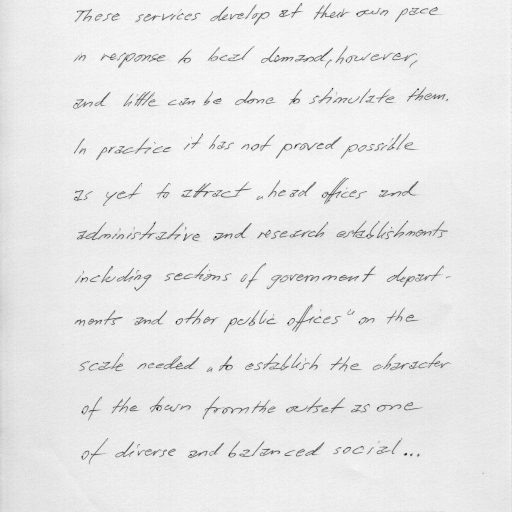 These services develop at their own pace
in response to local demand, however,
and little can be done to stimulate them.
In practice it has not proved possible
as yet to attract „head offices and
administrative and research establishments
including sections of government depart-
ments and other public offices" on the
scale needed „to establish the character
of the town from the outset as one
of diverse and balanced social...